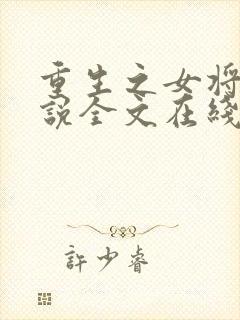 重生之女将
说全文在线
許少睿